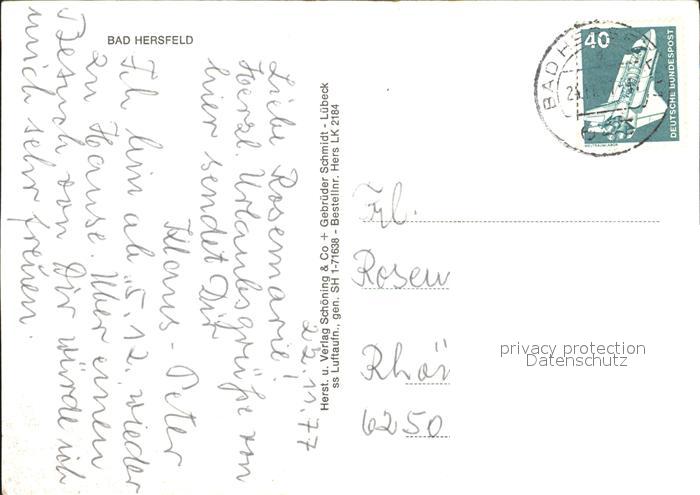 BAD HERSFELD
22.11.77
Liebe Rosemarie!
Herzl. Urlaubsgrüße von
hier sendet Dir
Klaus-Peter
Ich bin ab 5.12. wieder
zu Hause. Über einen
Besuch von Dir würde ich
mich sehr freuen.
Herst. u. Verlag Schöning & Co + Gebrüder Schmidt - Lübeck
ss Luftaufn., gen. SH 1-71638 - Bestellnr. Hers LK 2184
40
DEUTSCHE BUNDESPOST
WELTRAUMLABOR
BAD HE
Frl.
Rosem
Rhöi
6250
privacy protection
Datenschutz